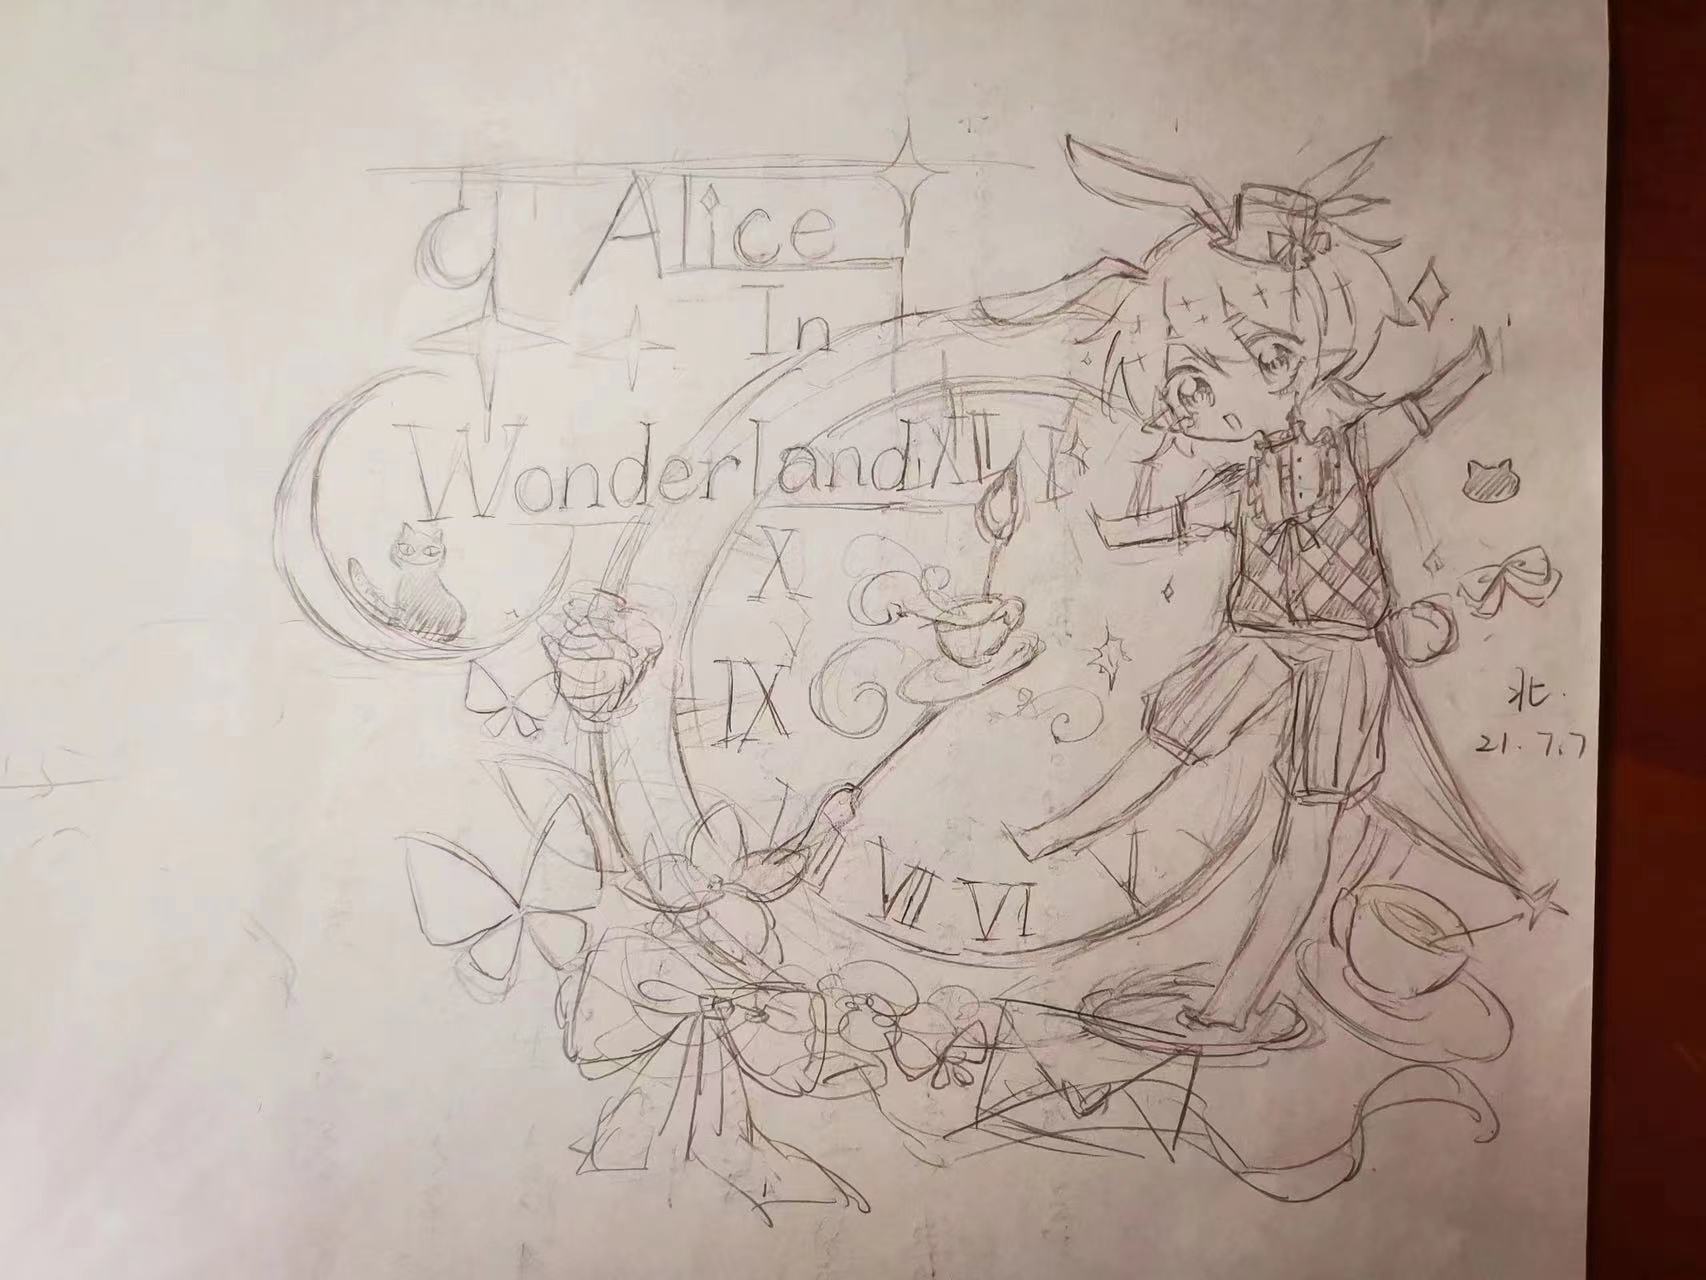 Alice
In
Wonderland
XII
I
X
IX
VII
VI
V
北.
21.7.7